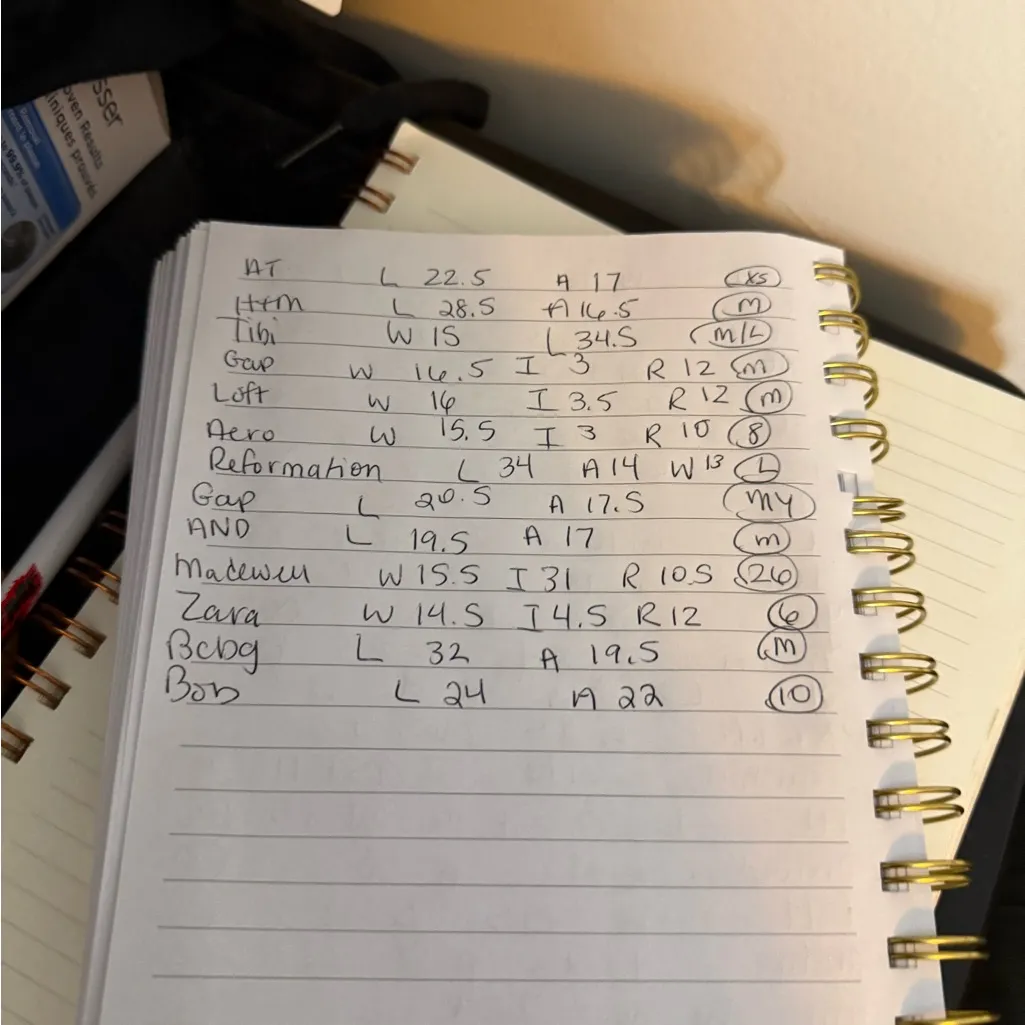 sser
oven Results
niques prouvés
AT L 22.5 A 17 XS
H+M L 28.5 A 16.5 M
Tibi W 15 L 34.5 M/L
Gap W 16.5 I 3 R 12 M
Loft W 16 I 3.5 R 12 M
Aero W 15.5 I 3 R 10 8
Reformation L 34 A 14 W 13 L
Gap L 20.5 A 17.5 My
AND L 19.5 A 17 M
Madewell W 15.5 I 31 R 10.5 26
Zara W 14.5 I 4.5 R 12 6
Bcbg L 32 A 19.5 M
Bob L 24 A 22 10